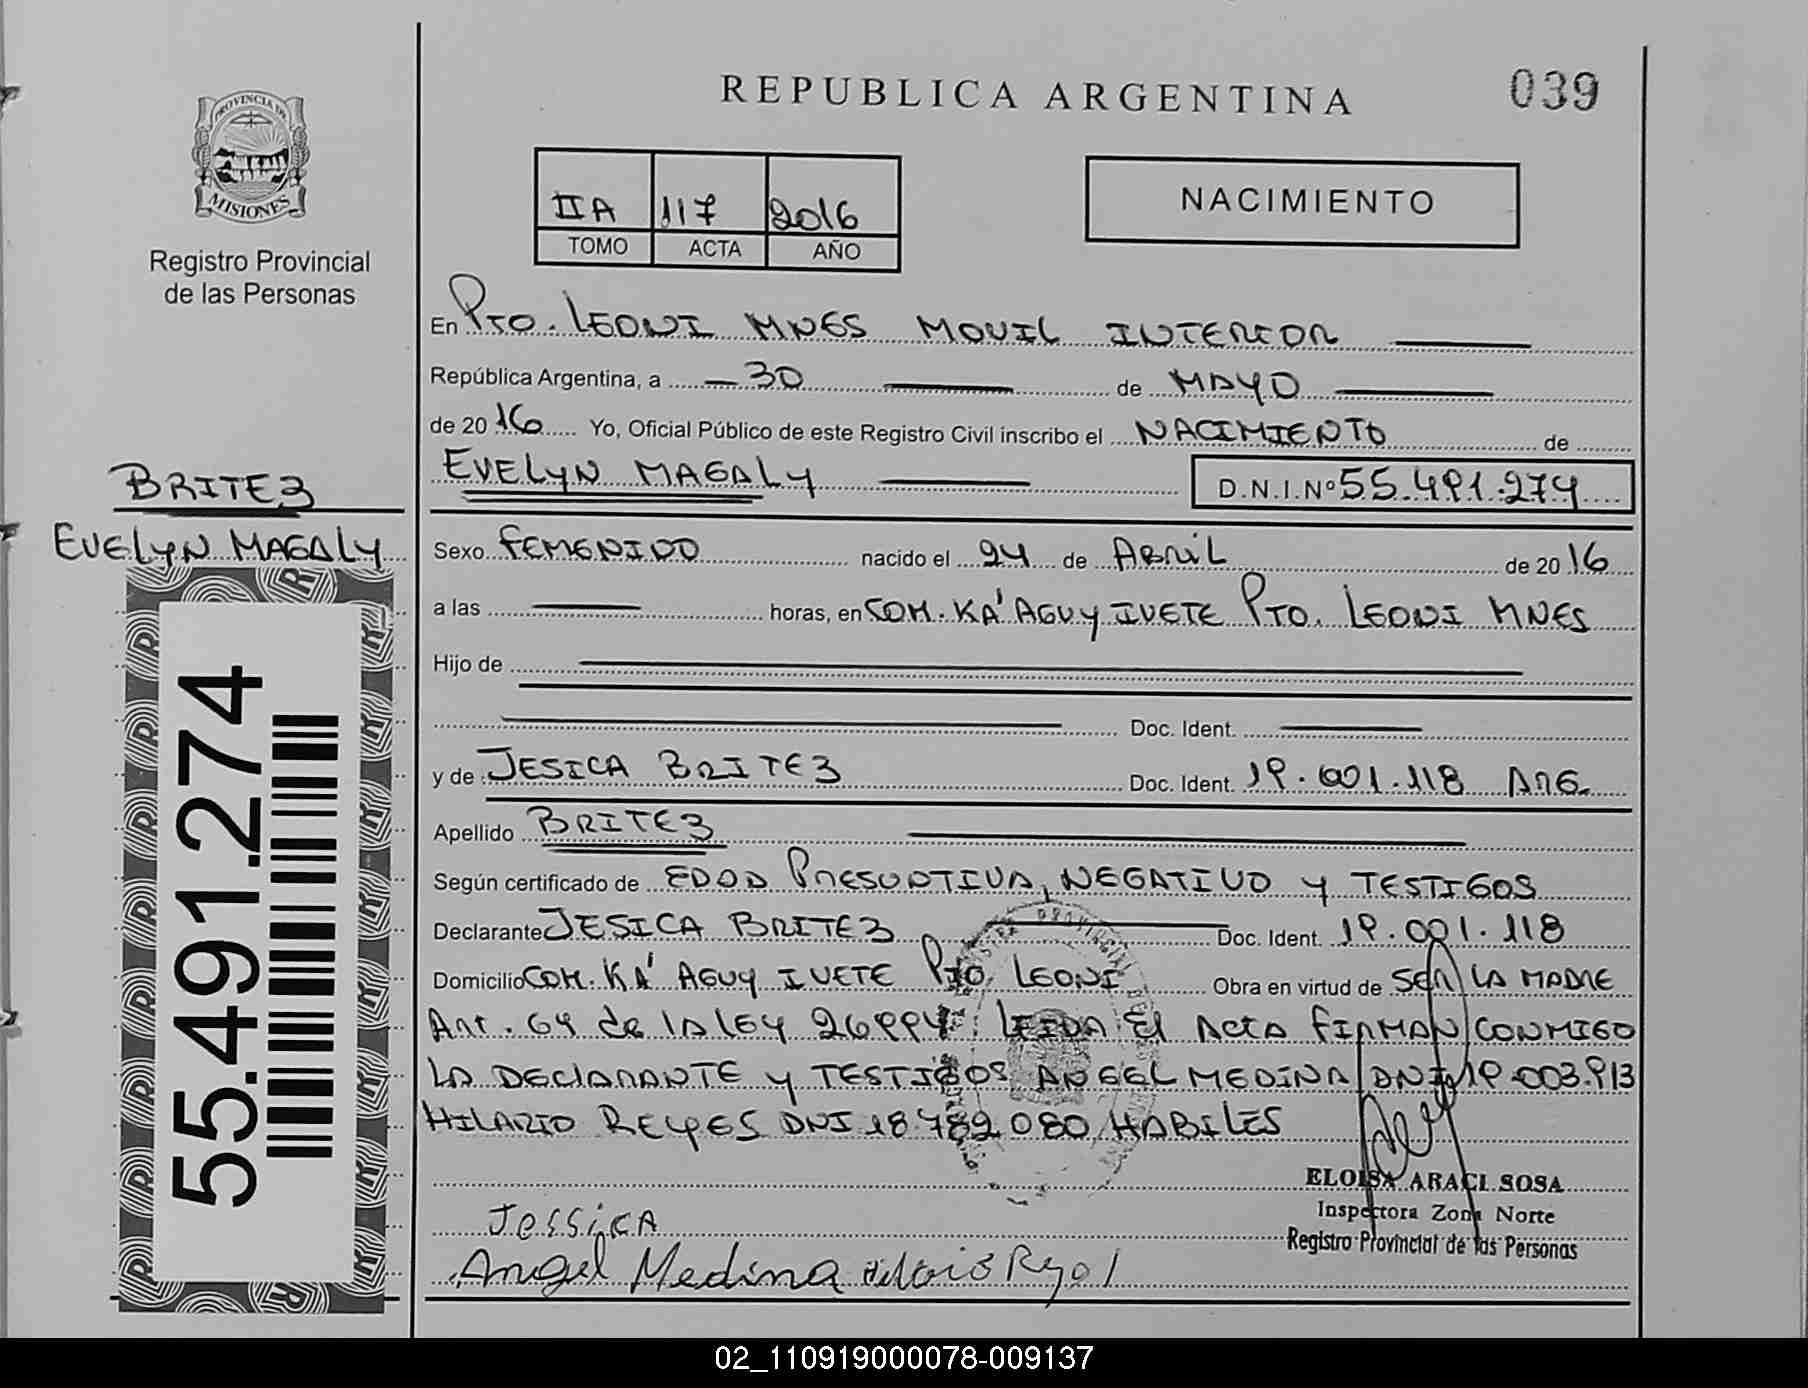 REPUBLICA ARGENTINA
039
PROVINCIA DE
MISIONES
Registro Provincial
de las Personas
IIA 117 2016
TOMO ACTA AÑO
NACIMIENTO
En Pto. LEONI MNES MOVIL INTERIOR
República Argentina, a 30 de MAYO
de 2016 Yo, Oficial Público de este Registro Civil inscribo el NACIMIENTO de
EVELYN MAGALY D.N.I.Nº 55.491.274
BRITEZ
EVELYN MAGALY
Sexo FEMENINO nacido el 24 de ABRIL de 2016
a las horas, en COM. KA'AGUY IVETE PTO. LEONI MNES
Hijo de
Doc. Ident.
y de JESICA BRITEZ Doc. Ident. 19.001.118 ARG.
Apellido BRITEZ
Según certificado de EDAD PRESUNTIVA, NEGATIVO Y TESTIGOS
Declarante JESICA BRITEZ Doc. Ident. 19.001.118
Domicilio COM. KA'AGUY IVETE Pto LEONI Obra en virtud de SER LA MADRE
Art. 64 de la ley 26994. LEIDA El Acta FIRMAN CONMIGO
LA DECLARANTE Y TESTIGOS ANGEL MEDINA DNI 19.003.913
HILARIO REYES DNI 18.782.080 HABILES
ELOISA ARACI SOSA
Inspectora Zona Norte
Registro Provincial de las Personas
Jessica
Angel Medina
55.491.274
02_110919000078-009137